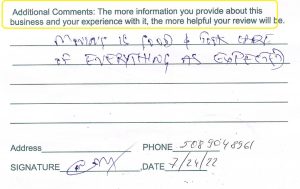 Additional Comments: The more information you provide about this
business and your experience with it, the more helpful your review will be.
IS GOOD & TOOK CARE
OF EVERYTHING AS EXPECTED
Address PHONE 5089048961
SIGNATURE DATE 7/24/22